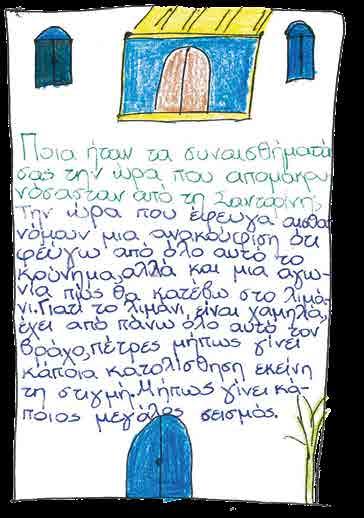 Ποια ήταν τα συναισθήματά
σας την ώρα που απομακρυ
νόσασταν από τη Σαντορίνη;
Την ώρα που έφευγα αισθα
νόμουν μια ανακούφιση ότι
φεύγω από όλο αυτό το
κρύνημα, αλλά και μια αγω
νία πώς θα κατέβω στο λιμά
νι. Γιατί το λιμάνι, είναι χαμηλά,
έχει από πάνω όλο αυτό τον
βράχο, πέτρες μήπως γίνει
κάποια κατολίσθηση εκείνη
τη στιγμή. Μήπως γίνει κά-
ποιος μεγάλος σεισμός.